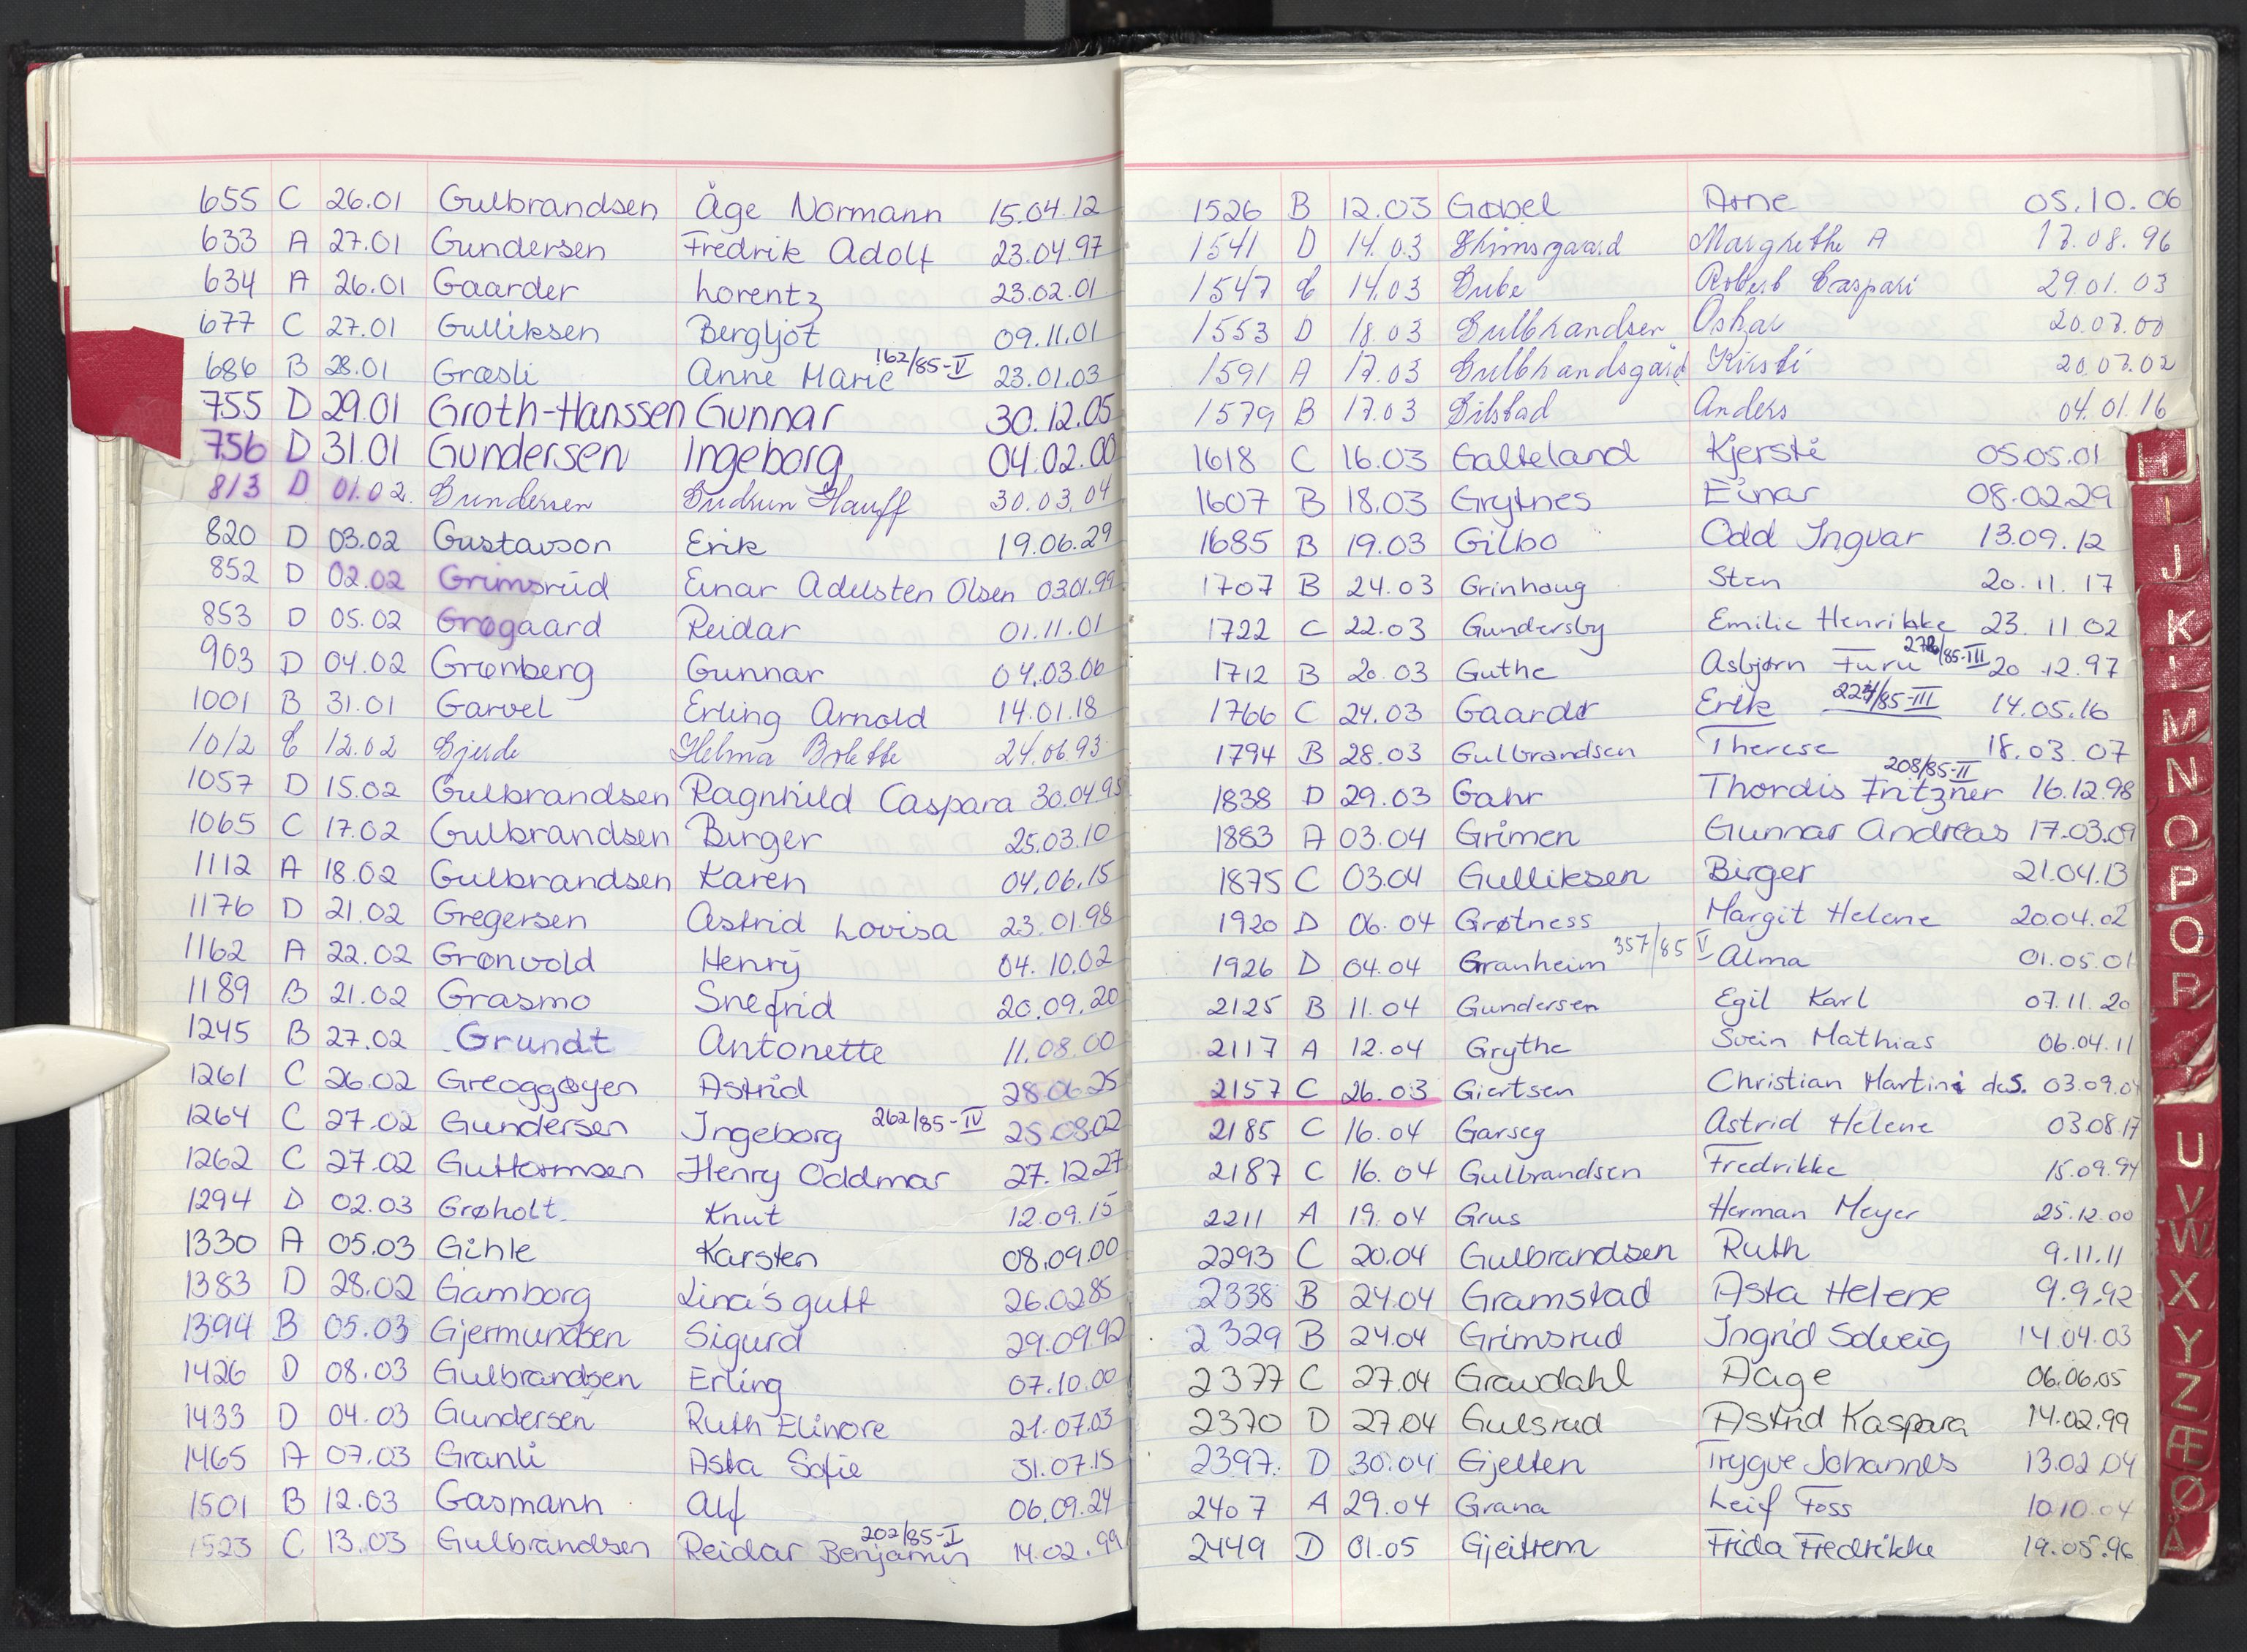 655 C 26.01 Gulbrandsen Åge Normann 15.04.12
633 A 27.01 Gundersen Fredrik Adolf 23.04.97
634 A 26.01 Gaarder Lorentz 23.02.01
677 C 27.01 Gulliksen Bergljot 09.11.01
686 B 28.01 Græsli Anne Marie 162/85-V 23.01.03
755 D 29.01 Groth-Hanssen Gunnar 30.12.05
756 D 31.01 Gundersen Ingeborg 04.02.00
813 D 01.02. Gundersen Gudrun Hauff 30.03.04
820 D 03.02 Gustavson Erik 19.06.29
852 D 02.02 Grimsrud Einar Adelsten Olsen 03.01.99
853 D 05.02 Grøgaard Reidar 01.11.01
903 D 04.02 Grønberg Gunnar 04.03.06
1001 B 31.01 Garvel Erling Arnold 14.01.18
1012 C 12.02 Gjerde Helma Bolette 24.06.93
1057 D 15.02 Gulbrandsen Ragnhild Caspara 30.04.95
1065 C 17.02 Gulbrandsen Birger 25.03.10
1112 A 18.02 Gulbrandsen Karen 04.06.15
1176 D 21.02 Gregersen Astrid Lovisa 23.01.98
1162 A 22.02 Grønvold Henry 04.10.02
1189 B 21.02 Grasmo Snefrid 20.09.20
1245 B 27.02 Grundt Antonette 11.08.00
1261 C 26.02 Greaggøyen Astrid 28.06.25
1264 C 27.02 Gundersen Ingeborg 262/85-IV 25.08.02
1262 C 27.02 Guttormsen Henry Oddmar 27.12.27
1294 D 02.03 Grøholt Knut 12.09.15
1330 A 05.03 Gihle Karsten 08.09.00
1383 D 28.02 Gamborg Lina's gutt 26.02.85
1394 B 05.03 Gjermundsen Sigurd 29.09.92
1426 D 08.03 Gulbrandsen Erling 07.10.00
1433 D 04.03 Gundersen Ruth Elinore 21.07.03
1465 A 07.03 Granli Asta Sofie 31.07.15
1501 B 12.03 Gasmann Alf 06.09.24
1523 C 13.03 Gulbrandsen Reidar Benjamin 202/85-I 14.02.99
1526 B 12.03 Gøbel Arne 05.10.06
1541 D 14.03 Grimsgaard Margrethe A 17.08.96
1547 C 14.03 Grube Robert Caspari 29.01.03
1553 D 18.03 Gulbrandsen Oskar 20.07.00
1591 A 17.03 Gulbrandsgård Kirsti 20.07.02
1579 B 17.03 Gilstad Anders 04.01.16
1618 C 16.03 Galteland Kjersti 05.05.01
1607 B 18.03 Grytnes Einar 08.02.29
1685 B 19.03 Gilbo Odd Ingvar 13.09.12
1707 B 24.03 Grinhaug Sten 20.11.17
1722 C 22.03 Gundersby Emilie Henrikke 23.11 02
1712 B 20.03 Guthe Asbjørn Furu 20.12.97
1766 C 24.03 Gaarder Erik 14.05.16
1794 B 28.03 Gulbrandsen Therese 18.03.07
1838 D 29.03 Gahr Thordis Fritzner 208/85-II 16.12.98
1883 A 03.04 Grimen Gunnar Andreas 17.03.09
1875 C 03.04 Gulliksen Birger 21.04.13
1920 D 06.04 Grøtness Margit Helene 20.04.02
1926 D 04.04 Granheim 357/85 V Alma 01.05.01
2125 B 11.04 Gundersen Egil Karl 07.11.20
2117 A 12.04 Grythe Svein Mathias 06.04.11
2157 C 26.03 Giertsen Christian Martini des. 03.09.04
2185 C 16.04 Garseg Astrid Helene 03.08.17
2187 C 16.04 Gulbrandsen Fredrikke 15.09.94
2211 A 19.04 Grus Herman Meyer 25.12.00
2293 C 20.04 Gulbrandsen Ruth 9.11.11
2338 B 24.04 Gramstad Asta Helene 9.9.92
2329 B 24.04 Grimsrud Ingrid Solveig 14.04.03
2377 C 27.04 Gravdahl Aage 06.06.05
2370 D 27.04 Gulsrud Astrid Kaspara 14.02.99
2397. D 30.04 Gjelten Trygve Johannes 13.02.04
2407 A 29.04 Grana Leif Foss 10.10.04
2449 D 01.05 Gjeitrem Frida Fredrikke 19.05.96
H
I
J
K
M
N
O
P
Q
R
U
V
W
X
Y
Z
Æ
Ø
Å